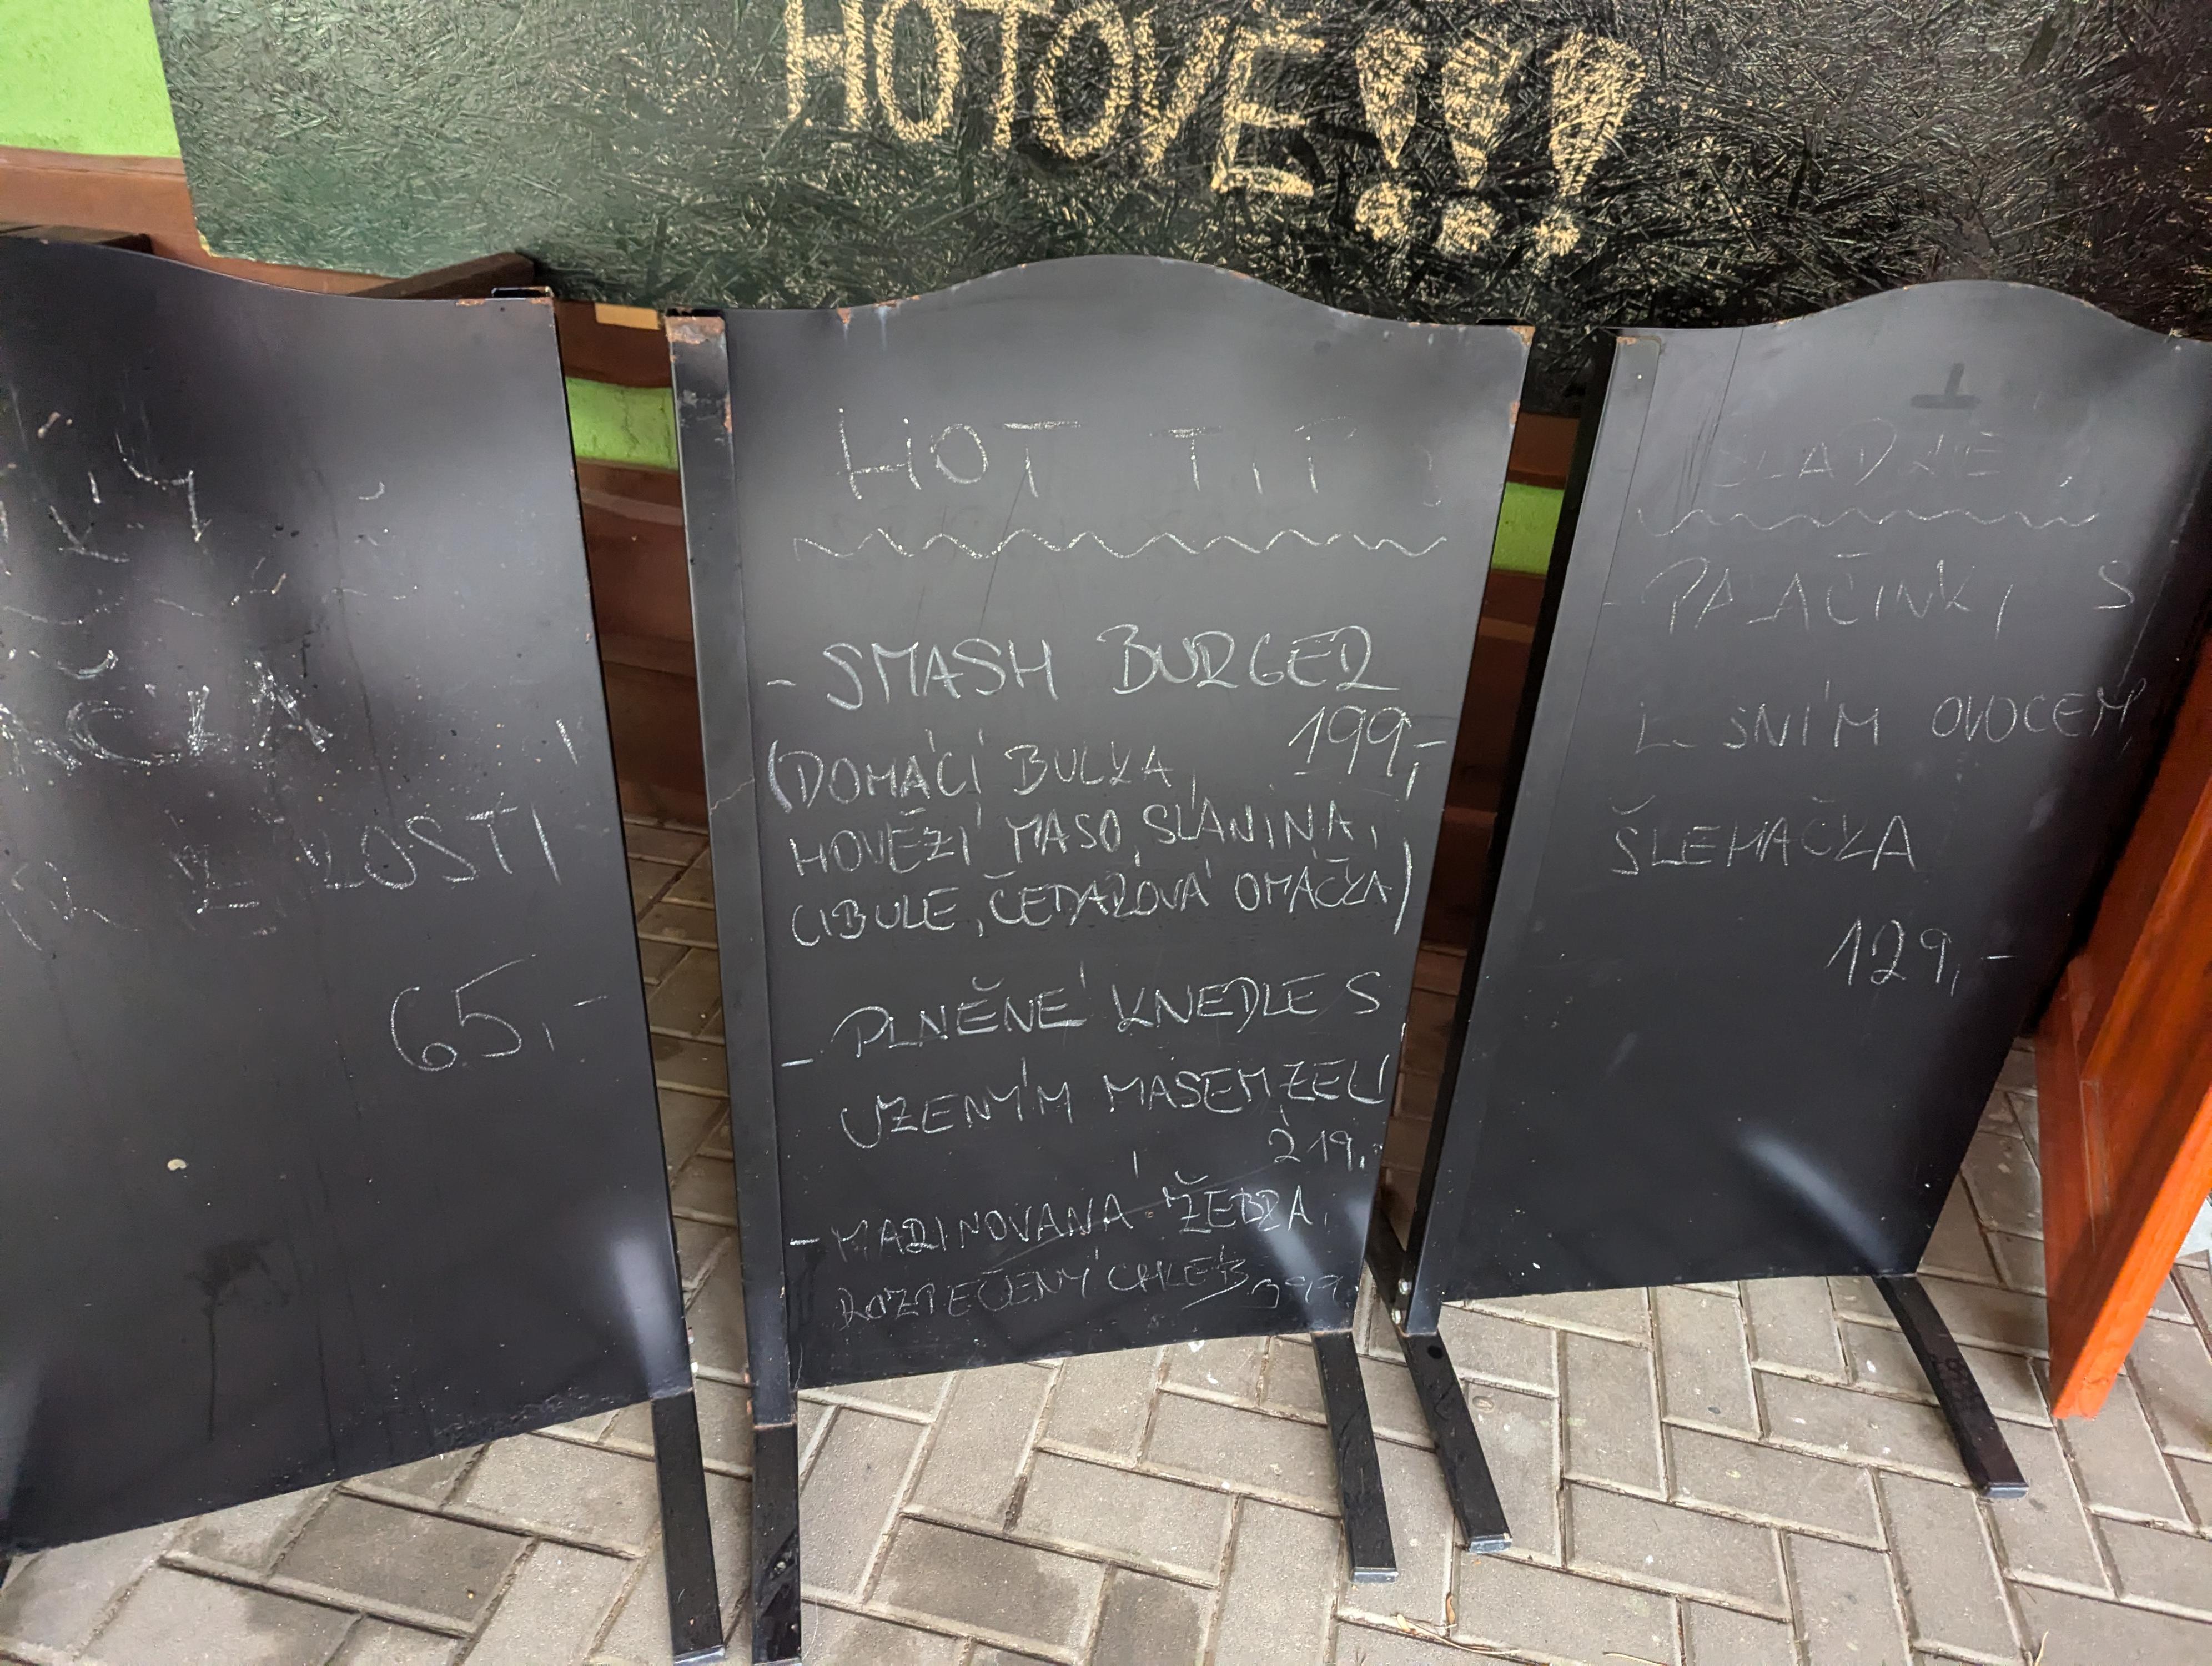 HOTOVÉ!!!
LOSTI
65,-
HOT TIP
- SMASH BURGER
199,-
(DOMÁCÍ BULKA,
HOVĚZÍ MASO, SLANINA,
CIBULE, ČEDAROVÁ OMÁČKA)
- PLNĚNÉ KNEDLE S
UZENÝM MASEM, ZELÍ
219,-
- MARINOVANÁ ŽEBRA,
ROZPEČENÝ CHLÉB
SLADKÉ
- PALAČINKY S
LESNÍM OVOCEM,
ŠLEHAČKA
129,-